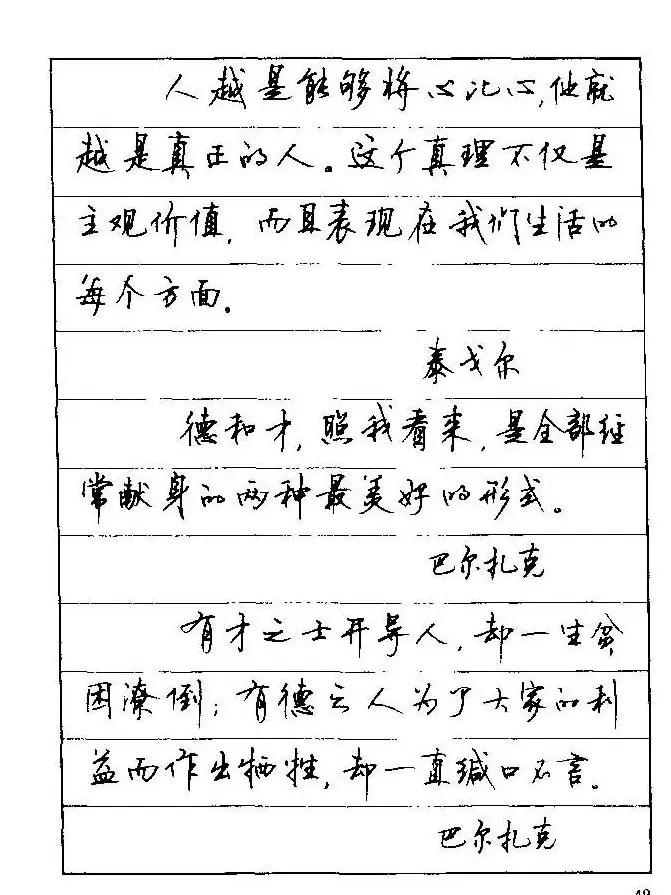 人越是能够将心比心,他就
越是真正的人。这个真理不仅是
主观价值,而且表现在我们生活的
每个方面。
泰戈尔
德和才,照我看来,是全部经
常献身的两种最美好的形式。
巴尔扎克
有才之士开导人,却一生贫
困潦倒;有德之人为了大家的利
益而作出牺牲,却一直缄口不言。
巴尔扎克